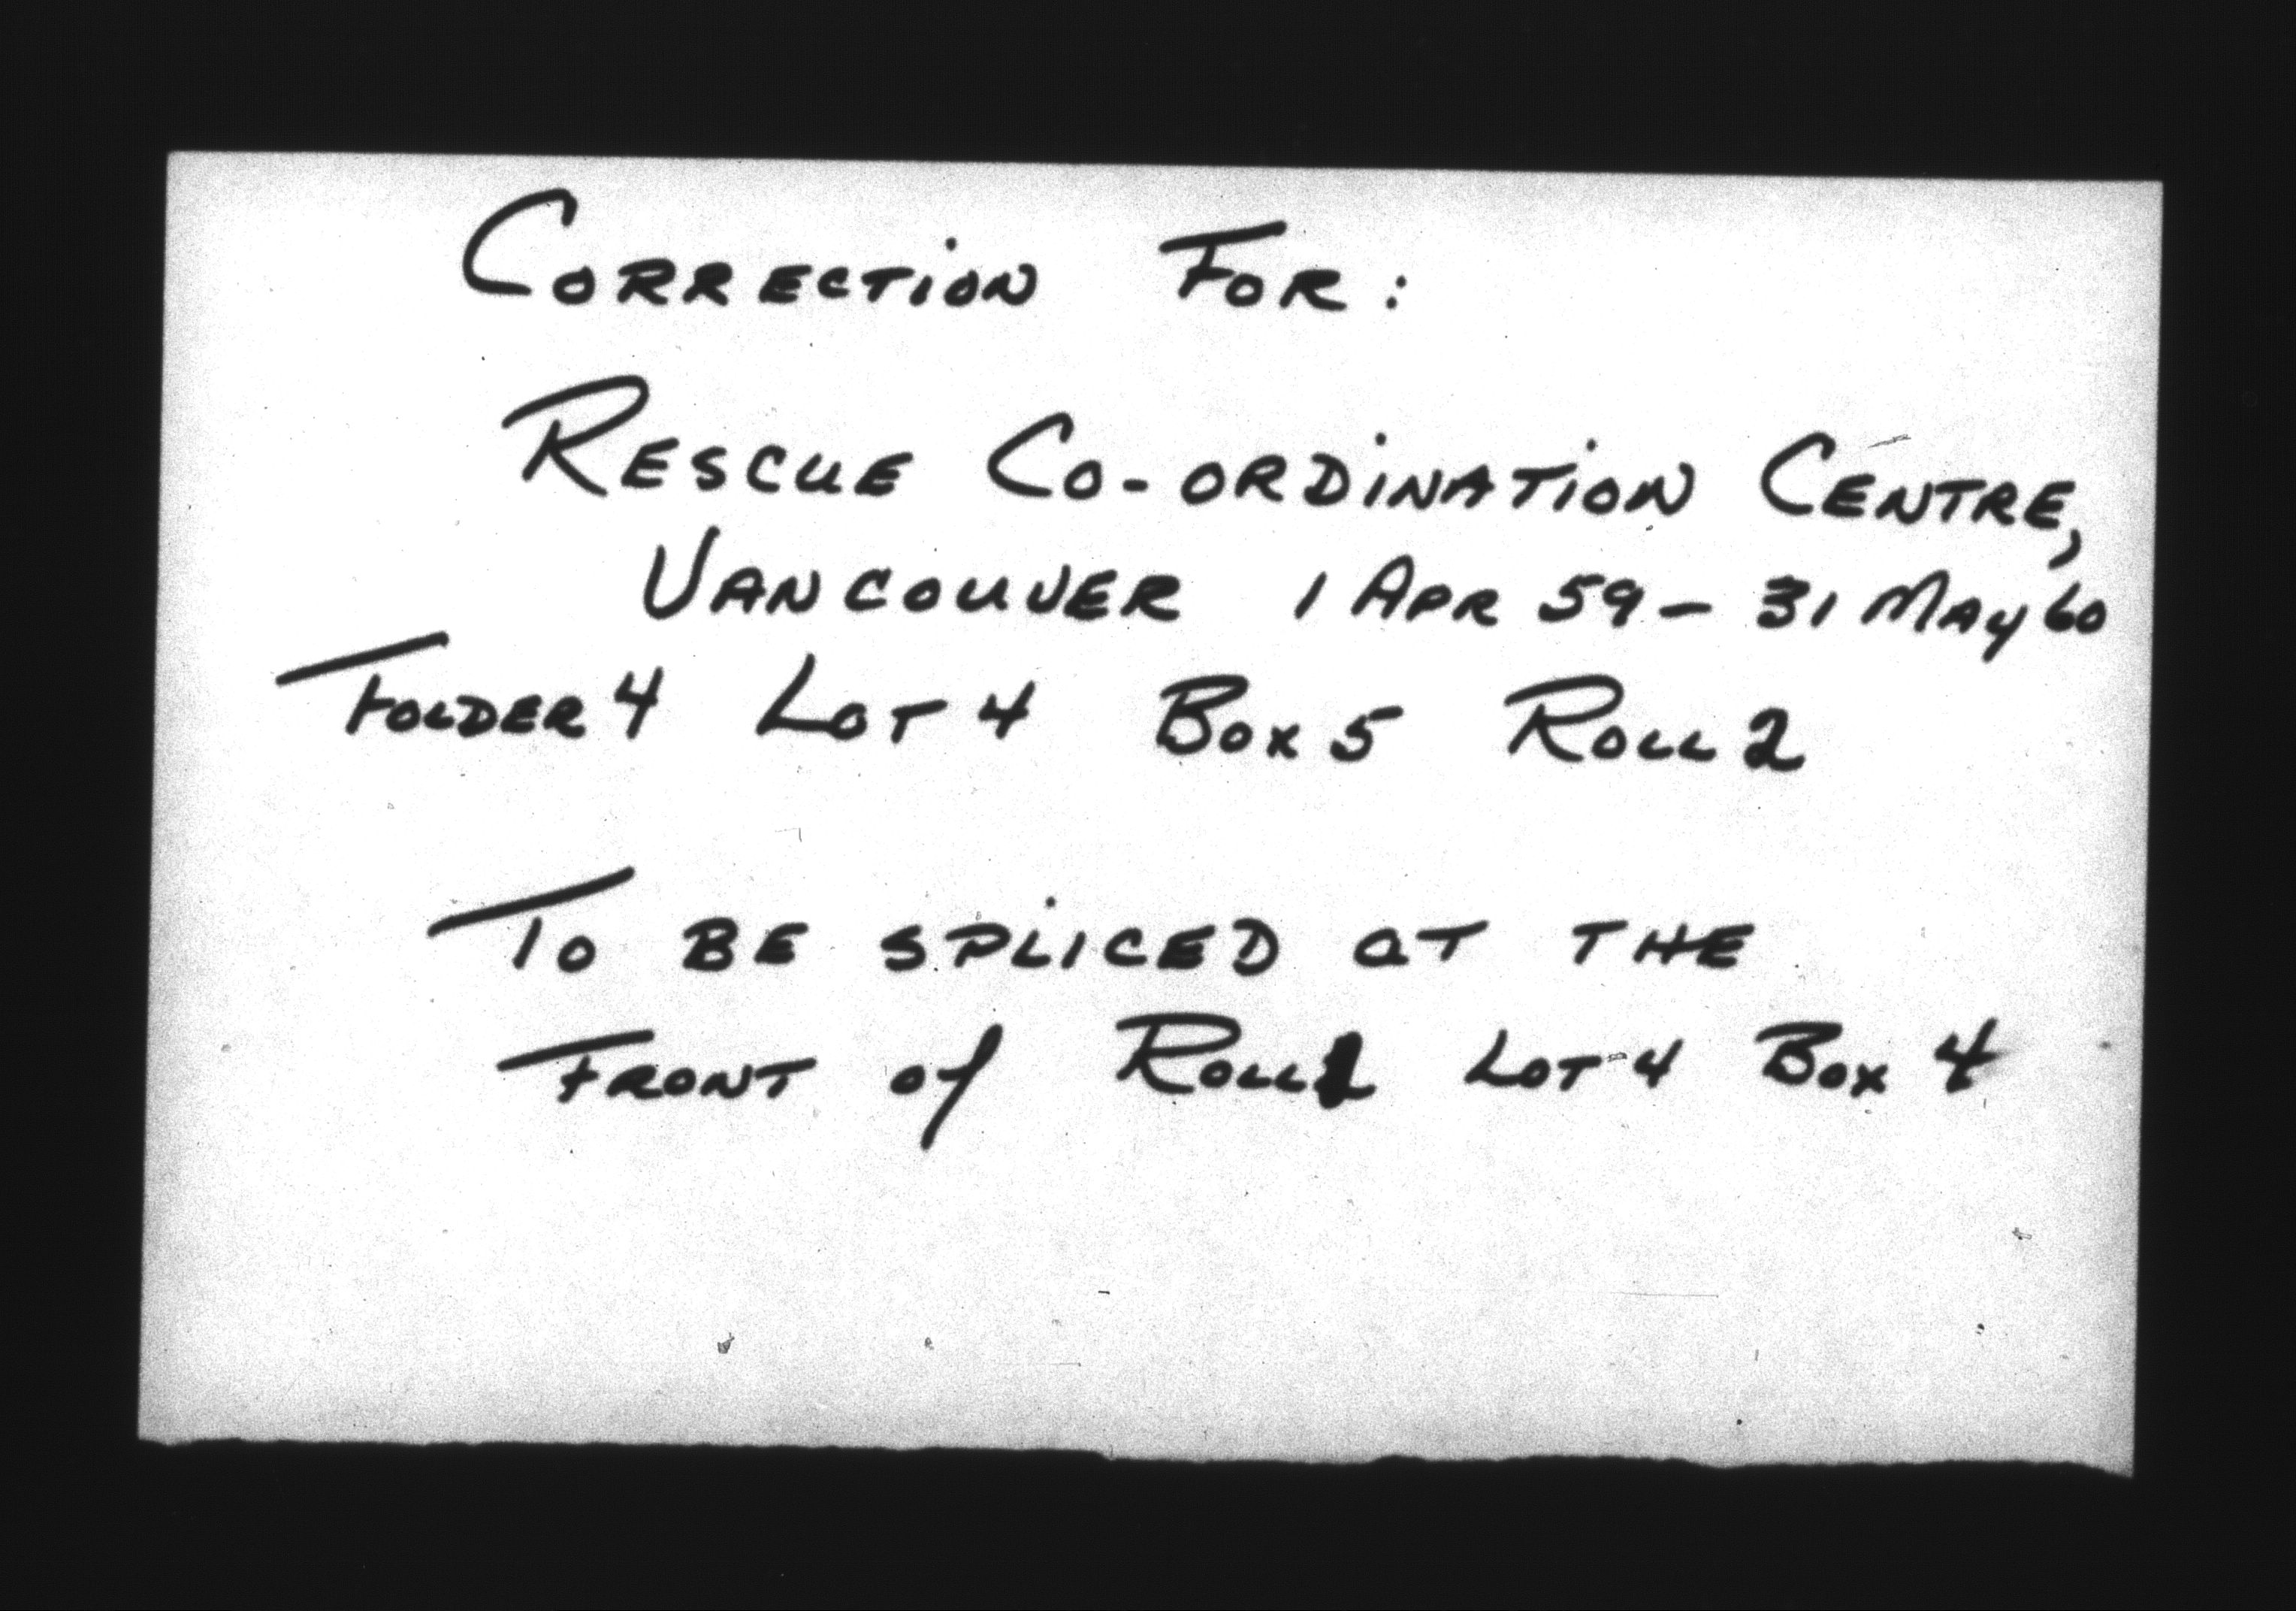 CORRECTION FOR:
RESCUE CO-ORDINATION CENTRE,
VANCOUVER 1 APR 59 - 31 MAY 60
FOLDER 4 LOT 4 BOX 5 ROLL 2
TO BE SPLICED AT THE
FRONT of ROLL LOT 4 BOX 4